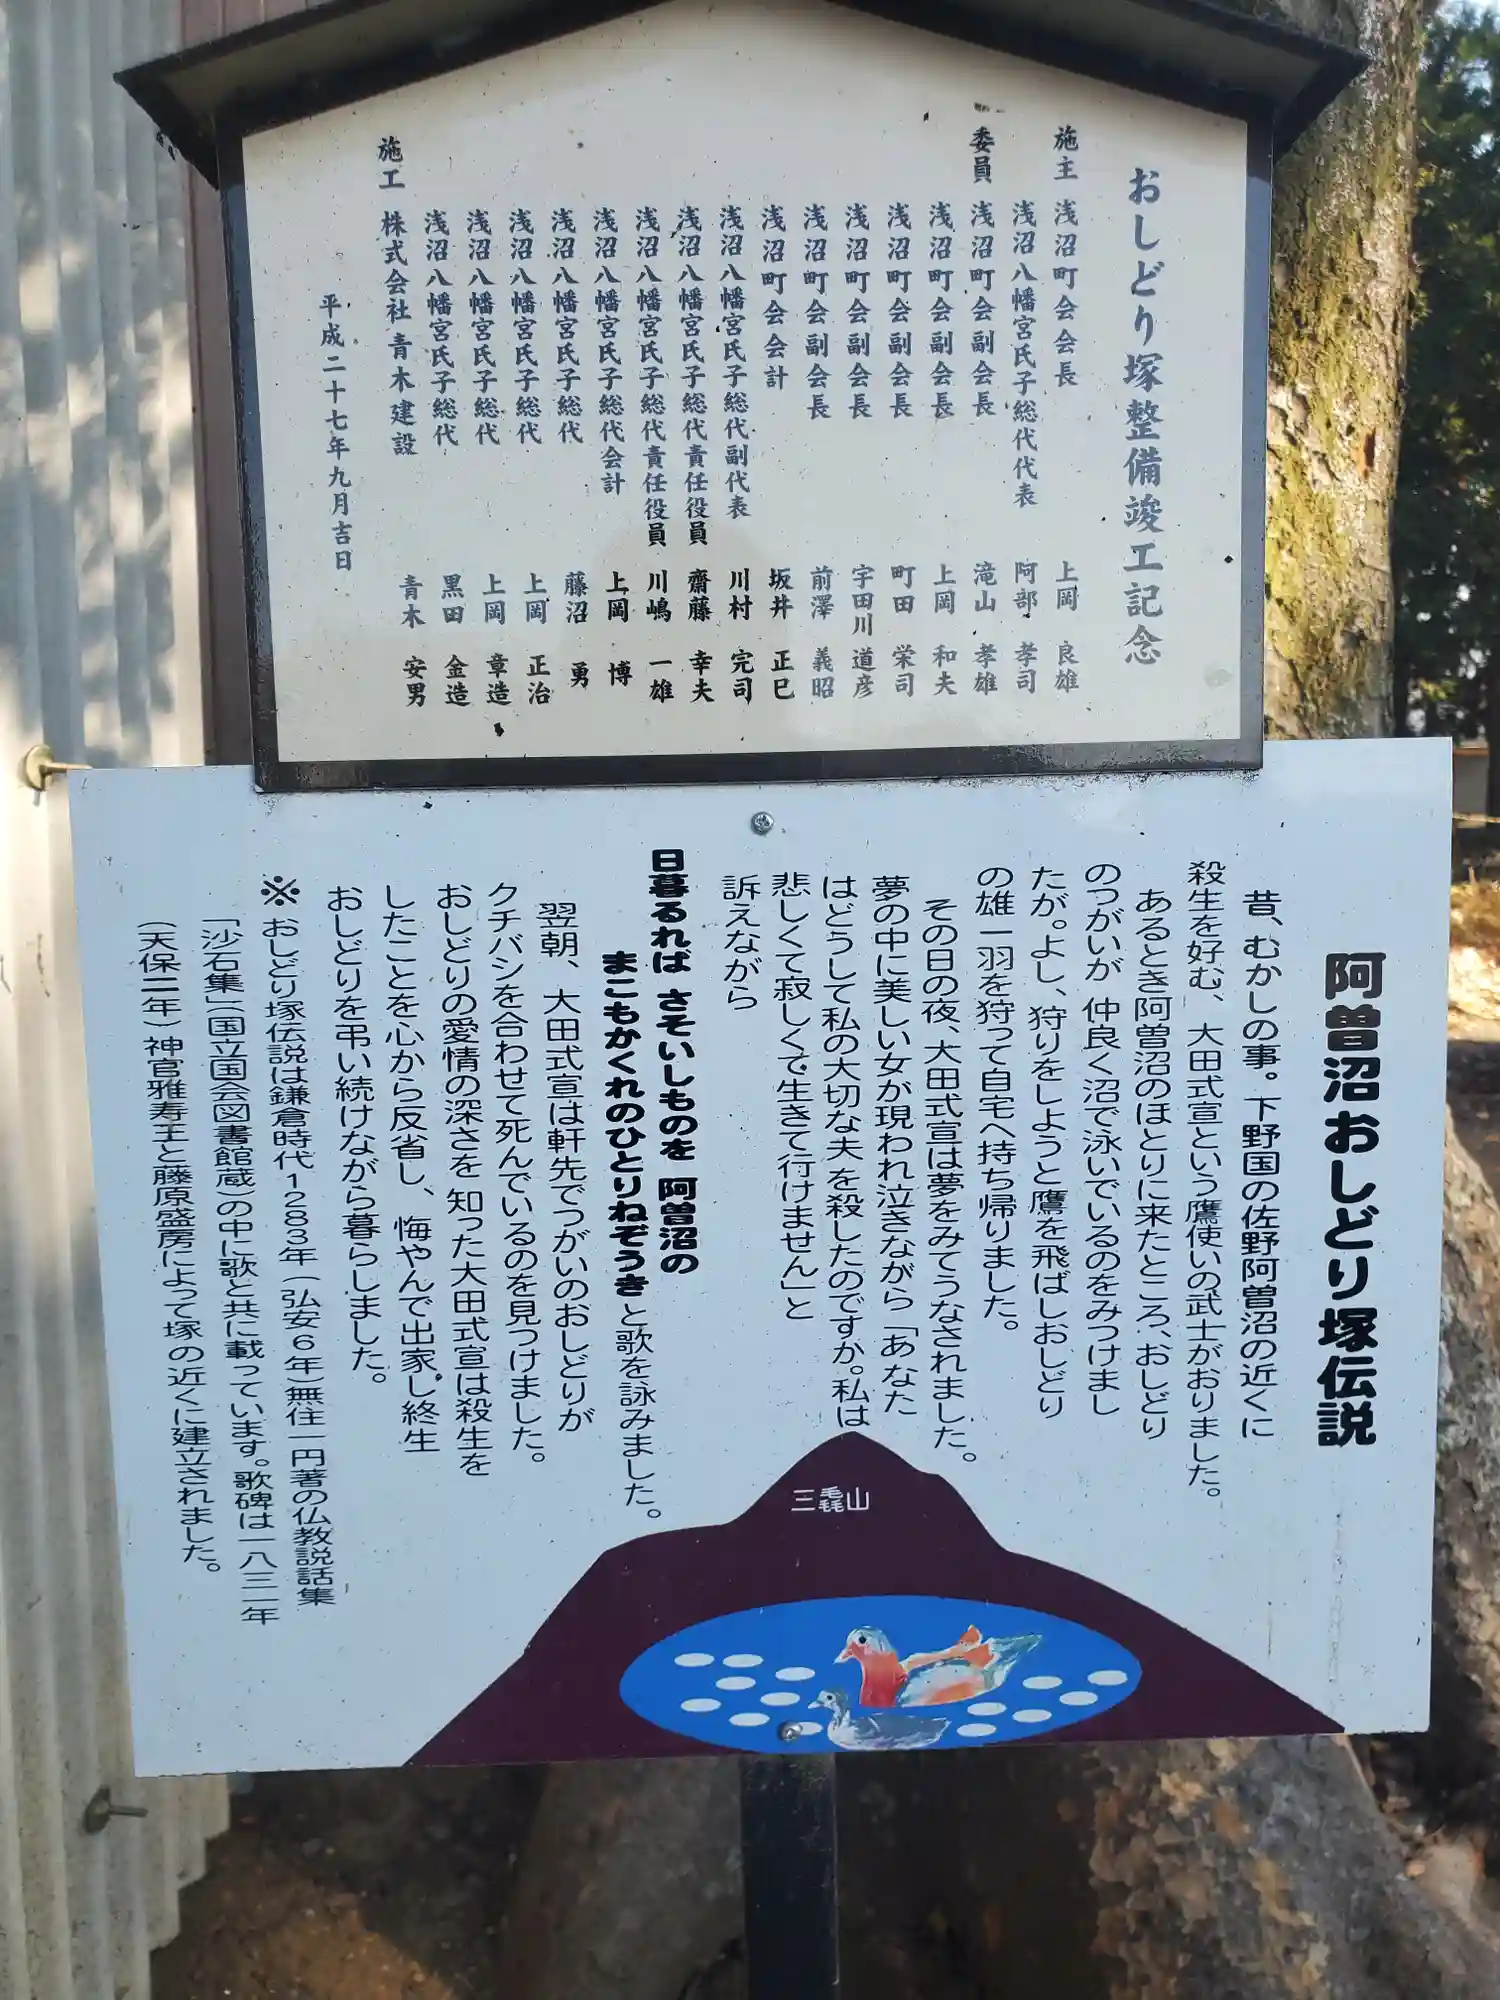 おしどり塚整備竣工記念
施主 浅沼町会会長 上岡 良雄
浅沼八幡宮氏子総代代表 阿部 孝司
委員 浅沼町会副会長 滝山 孝雄
浅沼町会副会長 上岡 和夫
浅沼町会副会長 町田 栄司
浅沼町会副会長 宇田川 道彦
浅沼町会副会長 前澤 義昭
浅沼町会会計 坂井 正巳
浅沼八幡宮氏子総代副代表 川村 完司
浅沼八幡宮氏子総代責任役員 齋藤 幸夫
浅沼八幡宮氏子総代責任役員 川嶋 一雄
浅沼八幡宮氏子総代会計 上岡 博
浅沼八幡宮氏子総代 藤沼 勇
浅沼八幡宮氏子総代 上岡 正治
浅沼八幡宮氏子総代 上岡 章造
浅沼八幡宮氏子総代 黒田 金造
施工 株式会社 青木建設 青木 安男
平成二十七年九月吉日
阿曽沼おしどり塚伝説
昔、むかしの事。下野国の佐野阿曽沼の近くに
殺生を好む、大田式宣という鷹使いの武士がおりました。
あるとき阿曽沼のほとりに来たところ、おしどり
のつがいが 仲良く沼で泳いでいるのをみつけまし
たが。よし、狩りをしようと鷹を飛ばしおしどり
の雄一羽を狩って自宅へ持ち帰りました。
その日の夜、大田式宣は夢をみてうなされました。
夢の中に美しい女が現われ泣きながら「あなた
はどうして私の大切な夫を殺したのですか。私は
悲しくて寂しくて生きて行けません」と
訴えながら
日暮るれば さそいしものを 阿曽沼の
まこもかくれのひとりねぞうき と歌を詠みました。
翌朝、大田式宣は軒先でつがいのおしどりが
クチバシを合わせて死んでいるのを見つけました。
おしどりの愛情の深さを 知った大田式宣は殺生を
したことを心から反省し、悔やんで出家し終生
おしどりを弔い続けながら暮らしました。
※おしどり塚伝説は鎌倉時代1283年(弘安6年)無住一円著の仏教説話集
「沙石集」(国立国会図書館蔵)の中に歌と共に載っています。歌碑は一八三一年
(天保二年)神官雅寿王と藤原盛房によって塚の近くに建立されました。
三毳山